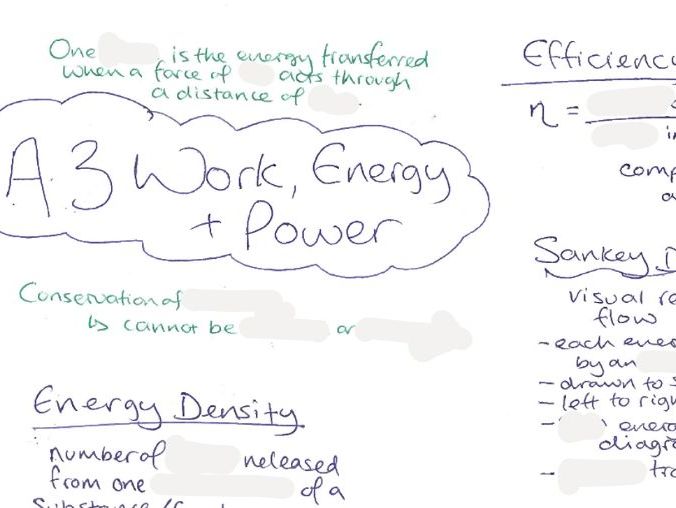 One is the energy transferred
when a force of acts through
a distance of .
A.3 Work, Energy
+ Power
Conservation of
↳ cannot be or
Energy Density
number of released
from one of a
Efficiency
η =
comp
Sankey D
visual re
flow
- each ener
by an
- drawn to s
- left to righ
- energ
diagra
- tra